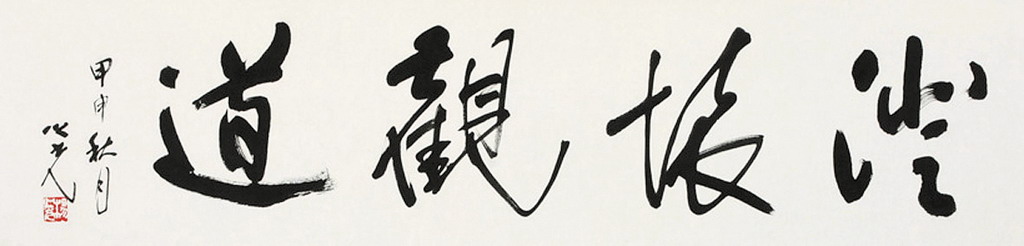 澄懷觀道
甲申秋月